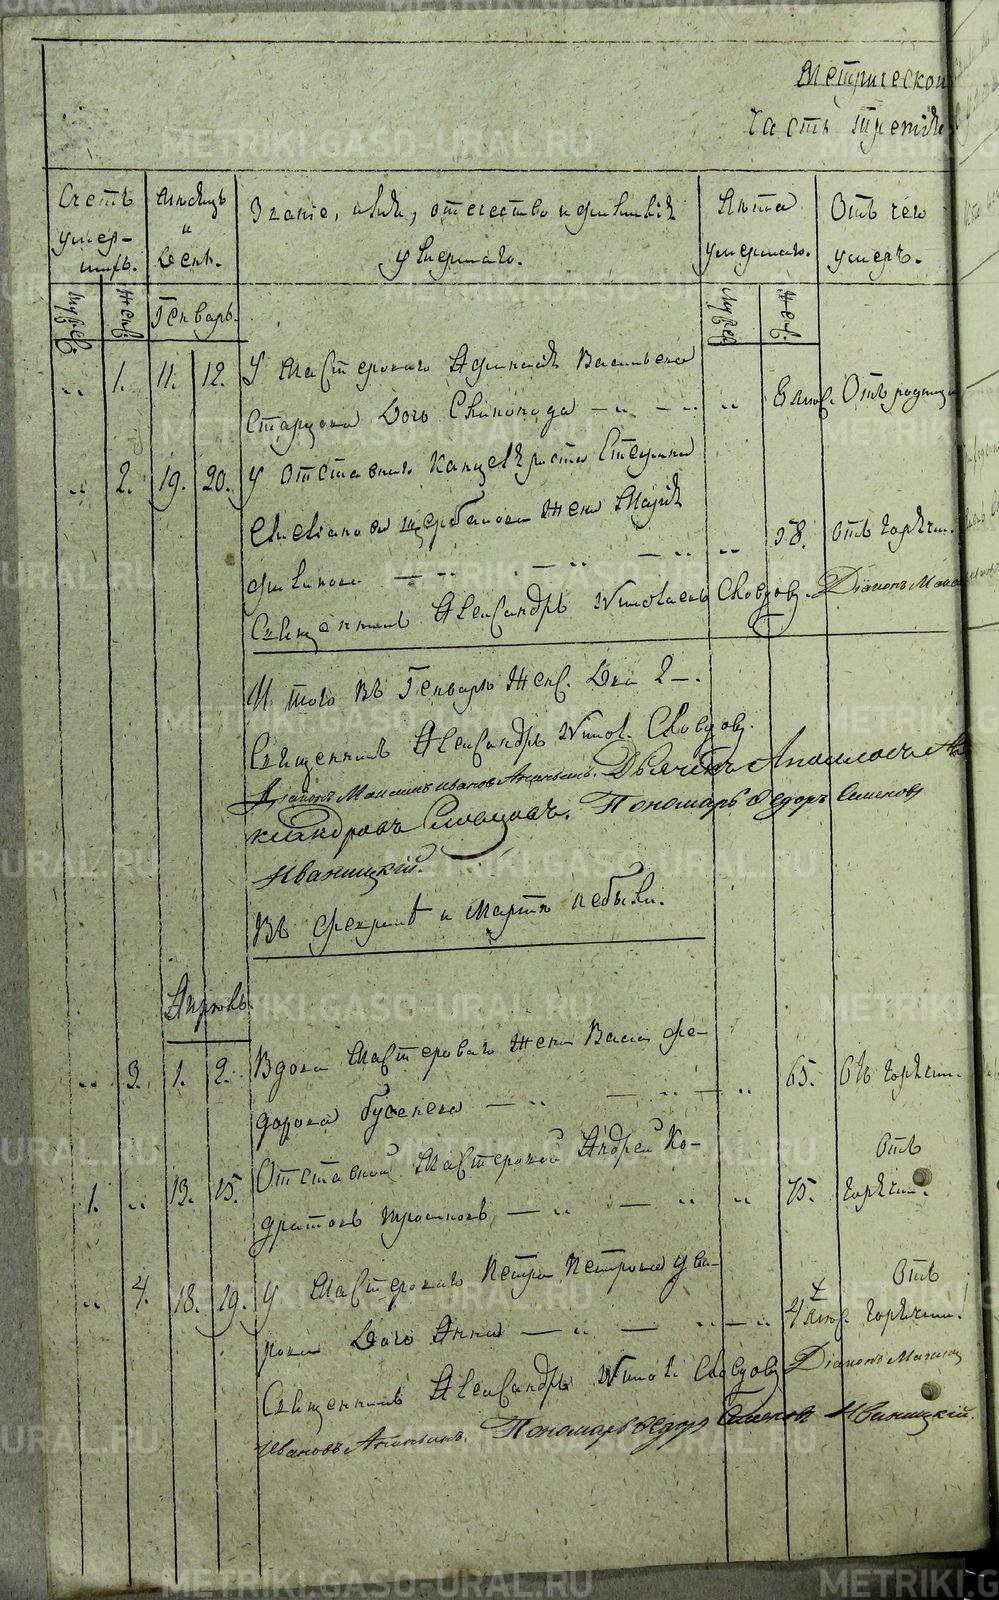 Метрической
Часть третія
Счетъ умер-шихъ.
Мѣсяцъ и день.
Званіе, имя, отечество и фамилія умершаго.
Лѣта умершаго.
Отъ чего умеръ.
Муж.
Жен.
Генварь.
Муж.
Жен.
„ 1. 11. 12. У Мастероваго Афанасія Васильева
Старцова дочь „ Отъ родимца
„ 2. 19. 20. У Отставнаго Канцеляриста Стефана
Щербакова жена Марія
„ 58. отъ горячки.
Священникъ Александръ Никол. Словцовъ. Діаконъ Максимъ
И того въ Генварѣ Жен. Два 2.
Священникъ Александръ Никол. Словцовъ.
Діаконъ Максимъ Ивановъ Ананьинъ. Дьячекъ Аполлосъ Але-
ксандровъ Словцовъ. Пономарь Ѳедоръ Семеновъ
Иваницкій.
Въ Февралѣ и Мартѣ небыли.
Апрель
„ 3. 1. 2. Вдова Мастероваго жена Васса Фе-
дорова „ 65. Отъ горячки.
1. „ 13. 15. Отставной Мастеровой Андрей Ко-
дратовъ „ 75. Отъ горячки.
„ 4. 18. 19. У Мастероваго Петра Петрова Ува-
рова дочь Анна „ 4 Отъ горячки.
Священникъ Александръ Никол. Словцовъ Діаконъ Максимъ
Ивановъ Ананьинъ. Пономарь Ѳедоръ Семеновъ Иваницкій.
METRIKI.GASO-URAL.RU